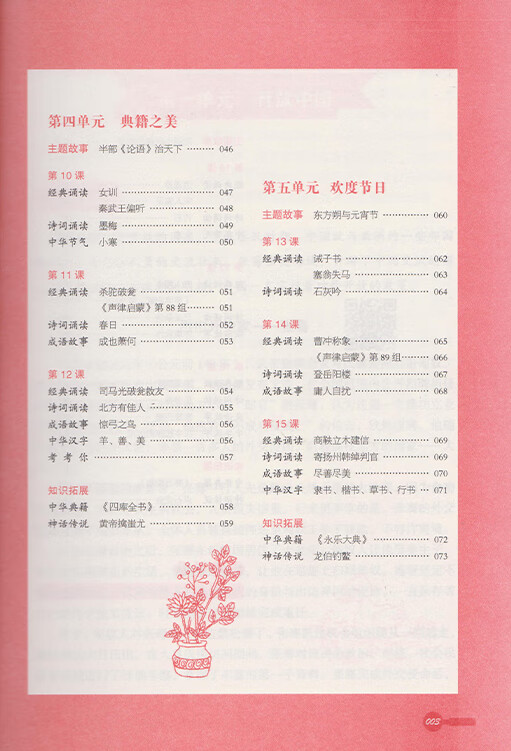 第四单元 典籍之美
主题故事 半部《论语》治天下 ……… 046
第 10 课
经典诵读 女训 ……………… 047
秦武王偏听 ……… 048
诗词诵读 墨梅 ……………… 049
中华节气 小寒 ……………… 050
第 11 课
经典诵读 杀驼破瓮 ………… 051
《声律启蒙》第 88 组…… 051
诗词诵读 春日 ……………… 052
成语故事 成也萧何 ………… 053
第 12 课
经典诵读 司马光破瓮救友 …… 054
诗词诵读 北方有佳人 ……… 055
成语故事 惊弓之鸟 ………… 056
中华汉字 羊、善、美 ……… 056
考考你 ……………… 057
知识拓展
中华典籍 《四库全书》 ……… 058
神话传说 黄帝擒蚩尤 ……… 059
第五单元 欢度节日
主题故事 东方朔与元宵节 …………… 060
第 13 课
经典诵读 诫子书 ……………… 062
塞翁失马 …………… 063
诗词诵读 石灰吟 ……………… 064
第 14 课
经典诵读 曹冲称象 …………… 065
《声律启蒙》第 89 组…… 066
诗词诵读 登岳阳楼 …………… 067
成语故事 庸人自扰 …………… 068
第 15 课
经典诵读 商鞅立木建信 ……… 069
诗词诵读 寄扬州韩绰判官 …… 069
成语故事 尽善尽美 …………… 070
中华汉字 隶书、楷书、草书、行书 … 071
知识拓展
中华典籍 《永乐大典》 ………… 072
神话传说 龙伯钓鳌 …………… 073
003